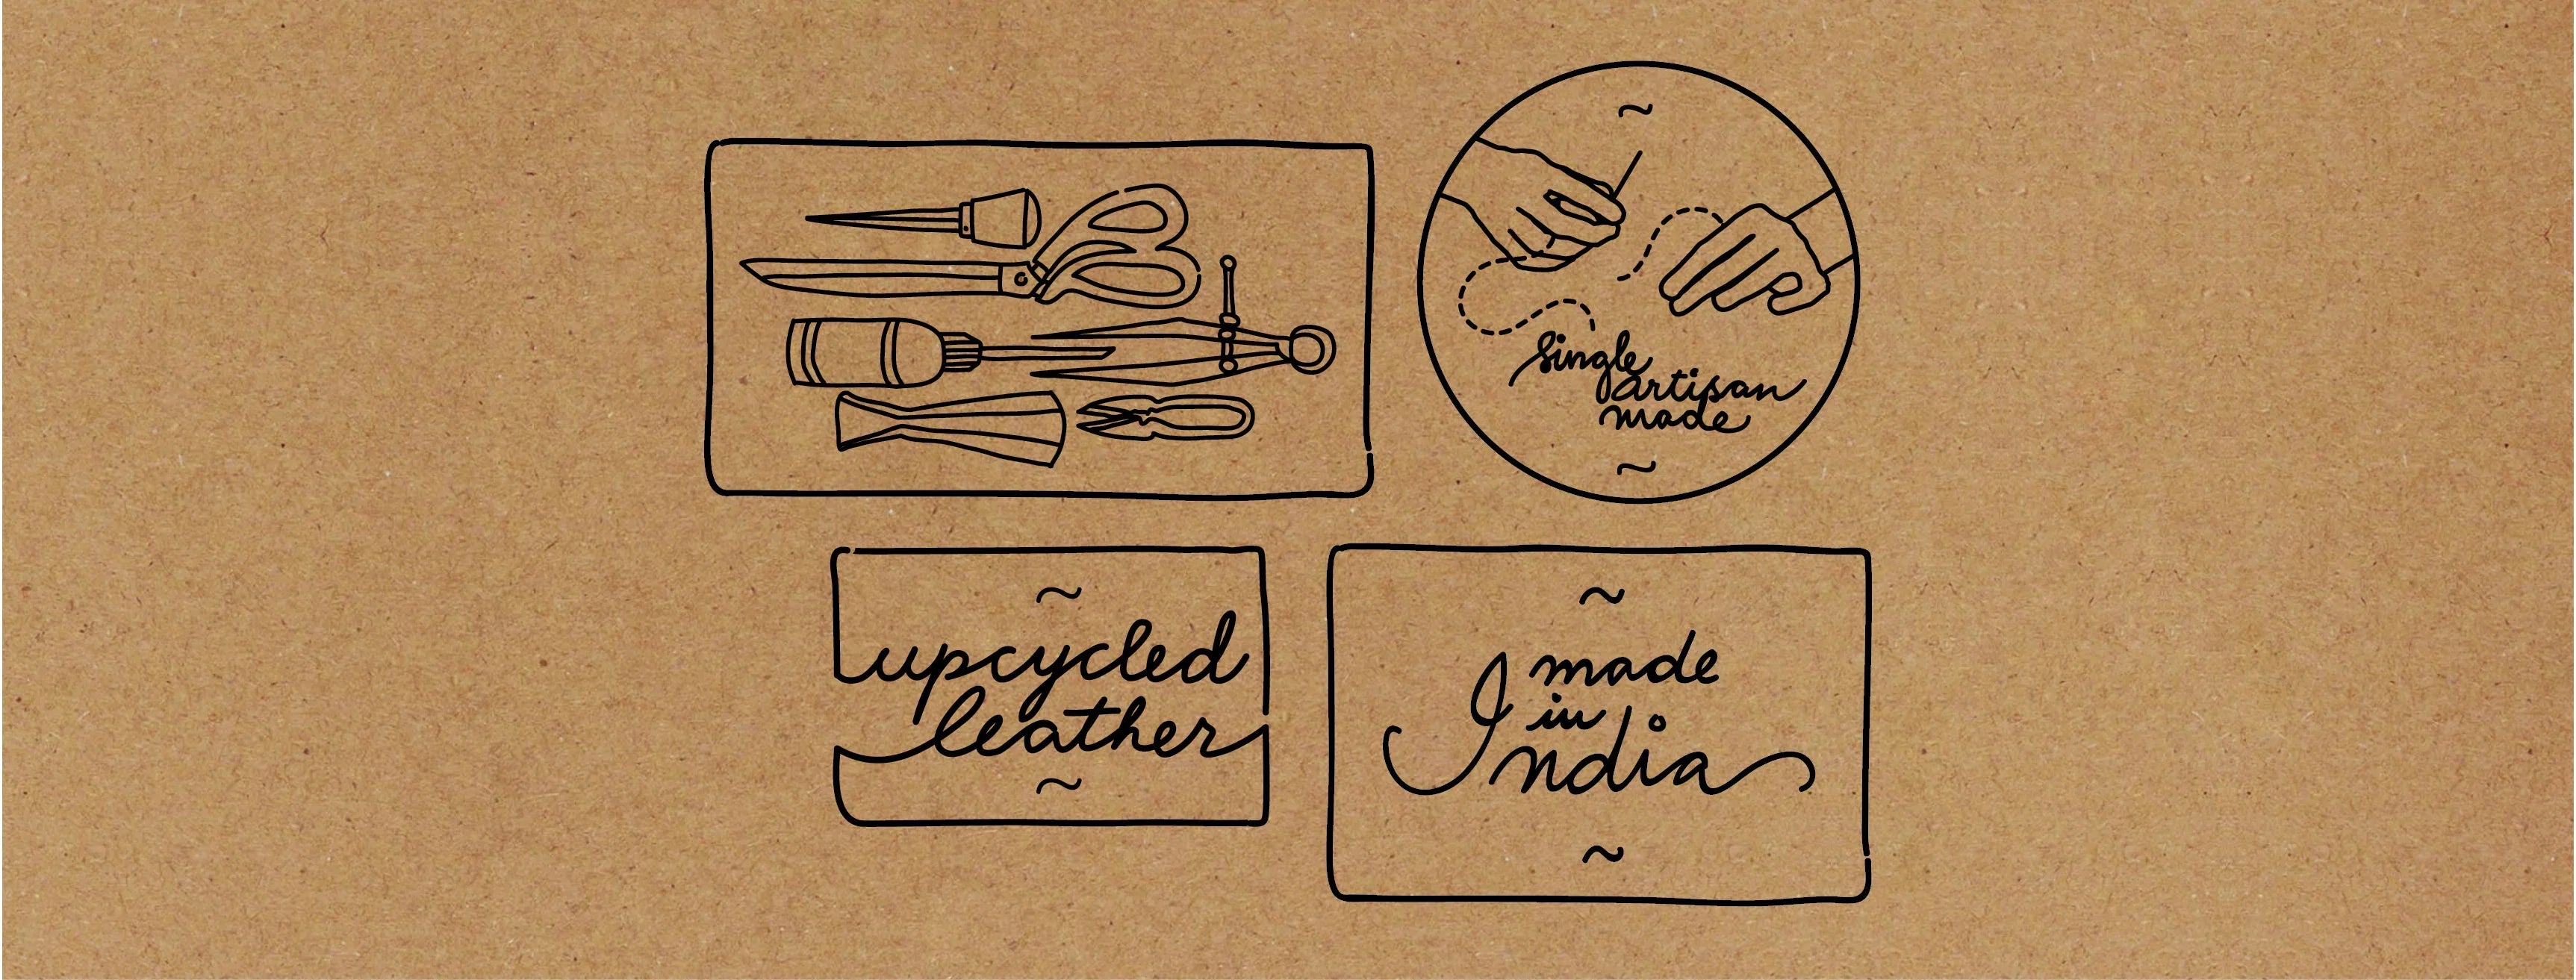 ~
single
artisan
made
~
~
upcycled
leather
~
~
made
in
India
~